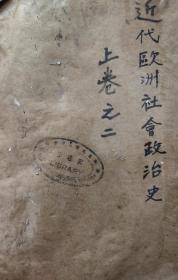 近代歐洲社會政治史
上卷之二
LIBRARY